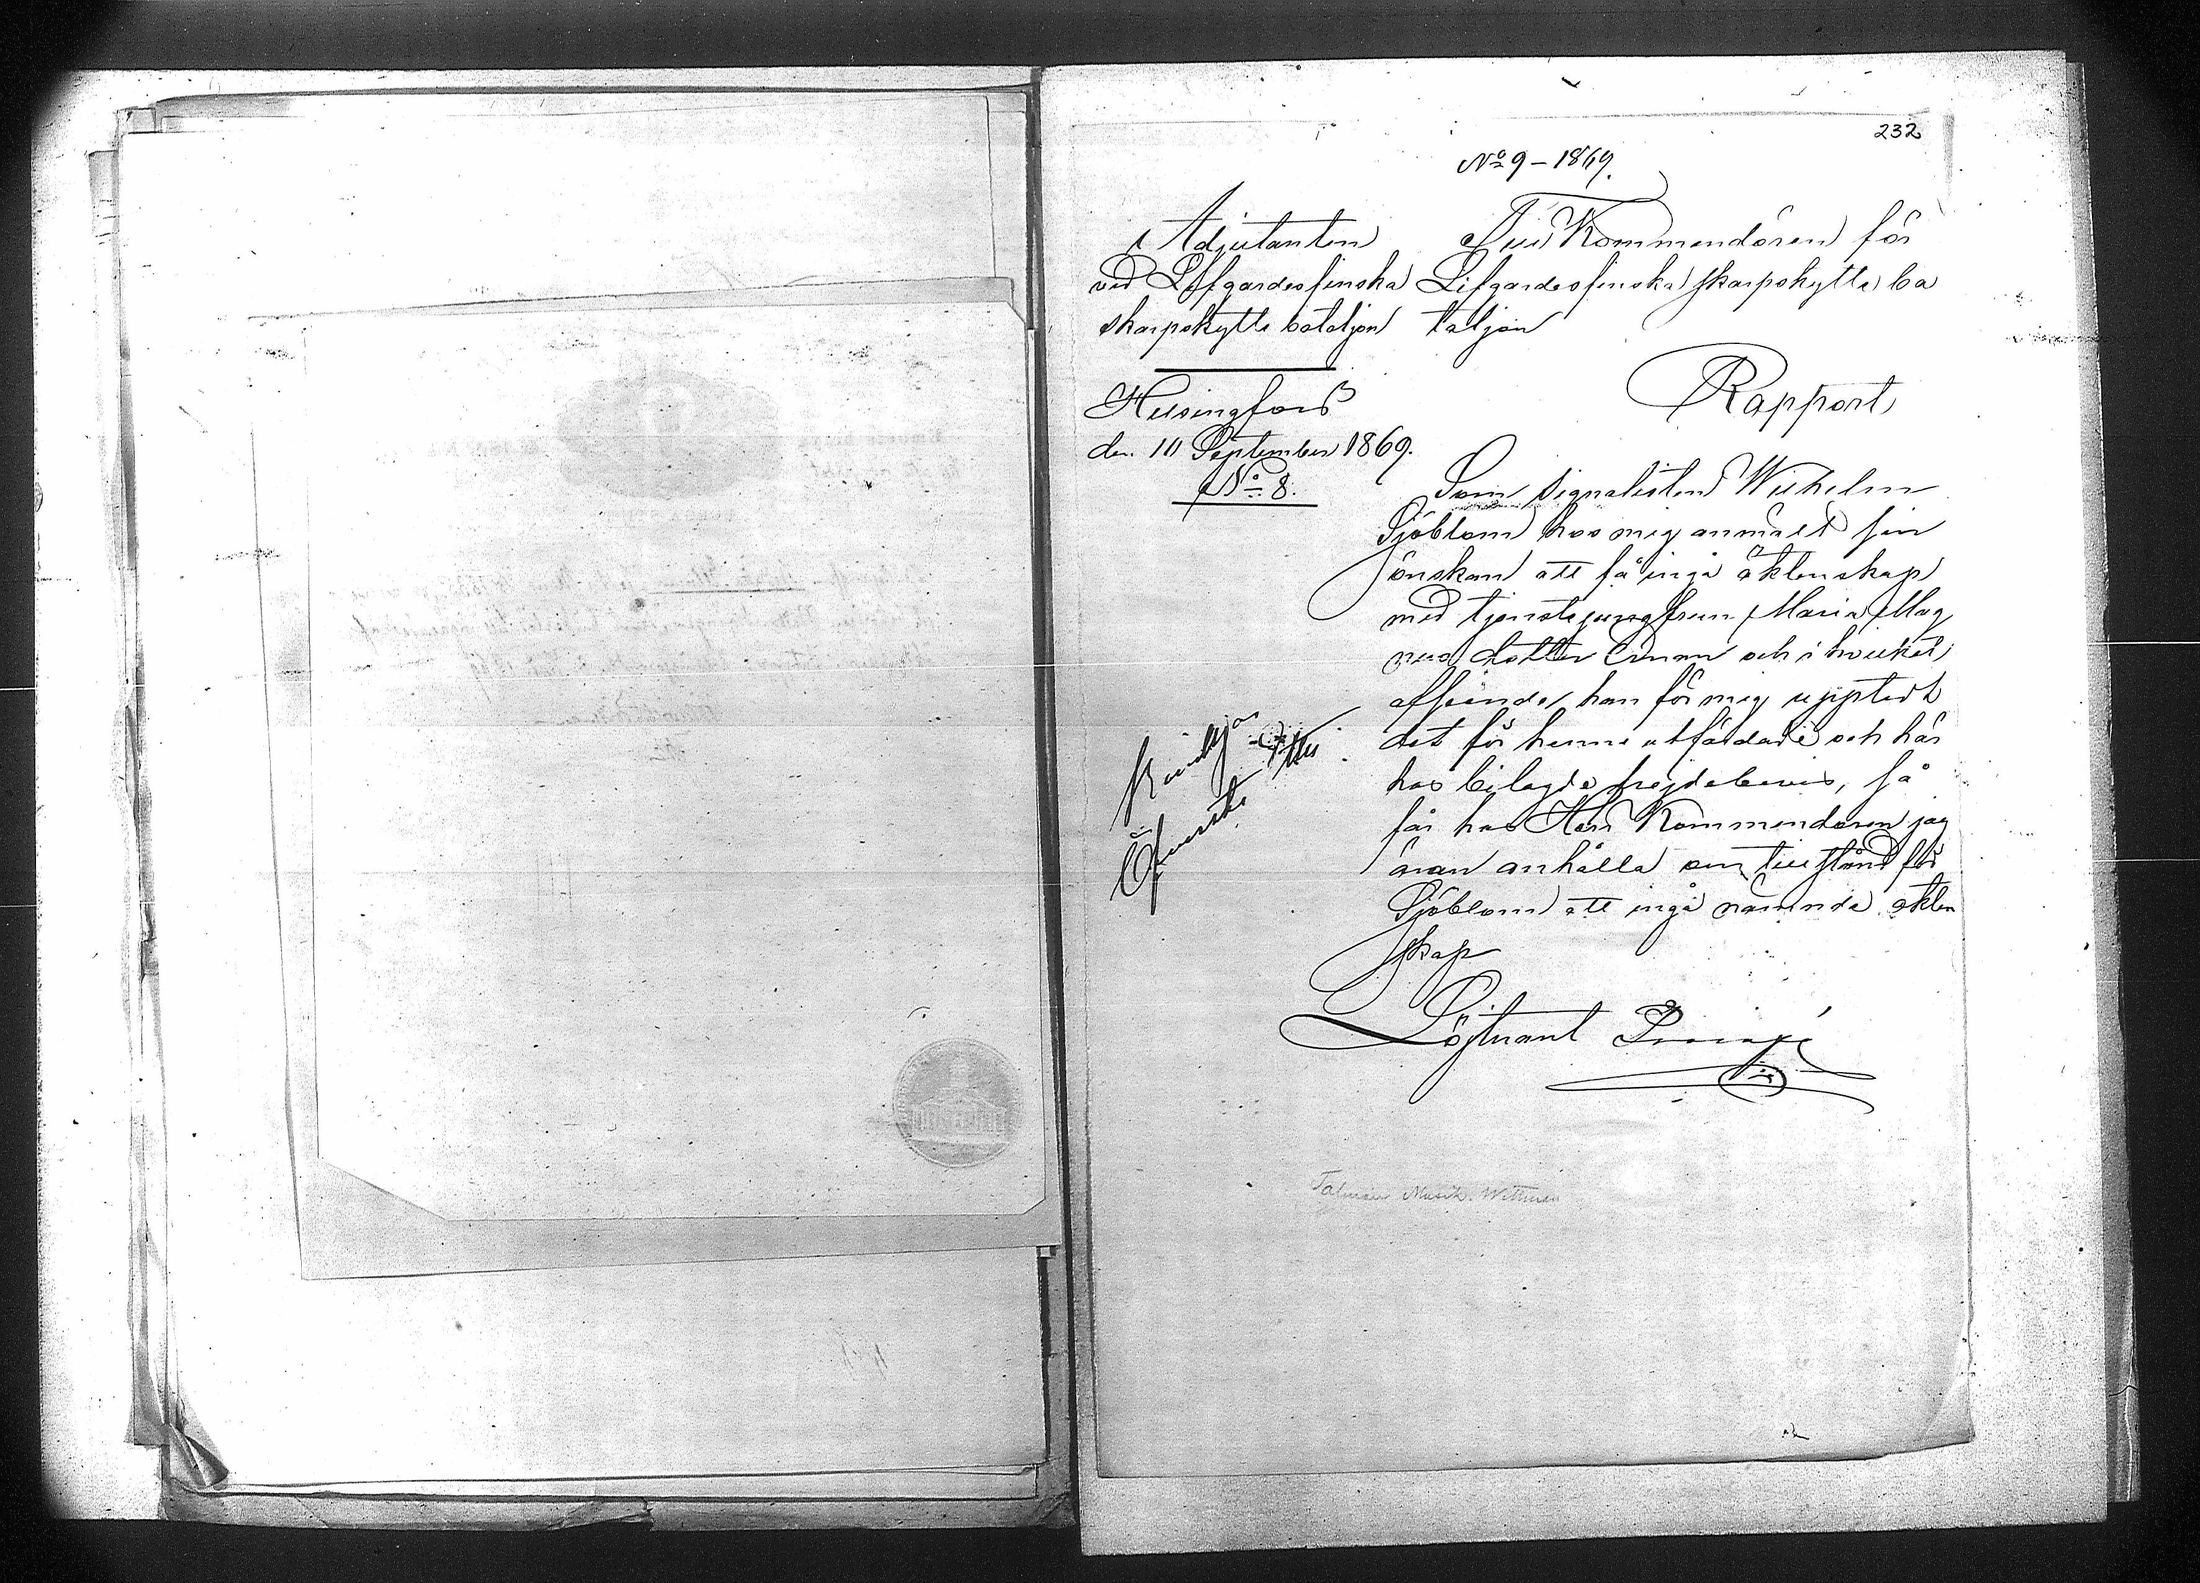 232
No 9 – 1869.
Adjutanten
ved Lifgardesfinska
skarpskytte bataljon
Helsingfors
den 10 September 1869.
No 8.
Till Kommendören för
Lifgardesfinska skarpskytte ba
taljon
Rapport
Som signalisten Wilhelm
Sjöblom hos mig anmält sin
önskan att få ingå äktenskap
med tjenstejungfrun Maria Mag
nus dotter Enman och i hvilket
afseende han för mig uppted t
det för henne utfärdade och här
hos bilagda frejdebevis, så
får hos Herr Kommendören jag
äran anhålla om tillstånd för
Sjöblom att ingå nämnde äkten
skap
Löjtnant
Beviljas
Öfverste
Talman Musik. Wittman